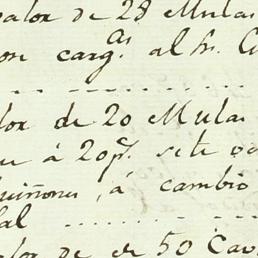 valor de 28 Mulas
on cargas al Sr.
lor de 20 Mulas
ue á 20ps. se le
uiñones, á cambio
al
lor de de 50 Cav